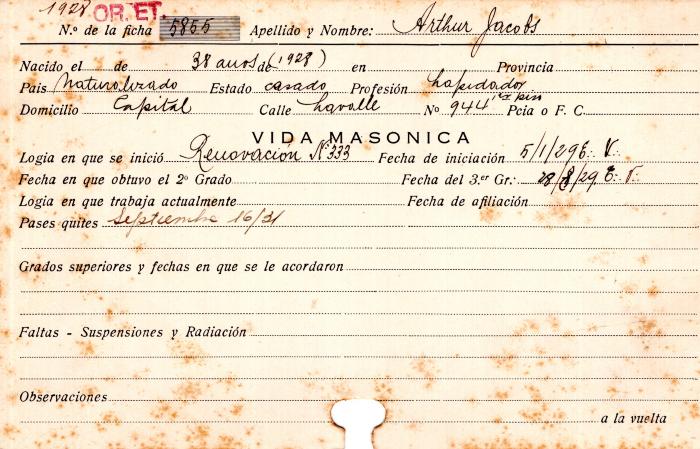 1928 OR. ET.
N.º de la ficha 5855 Apellido y Nombre: Arthur Jacobs
Nacido el de 38 anos de (1928) en Provincia
Pais Naturalizado Estado casado Profesión Lapidador
Domicilio Capital Calle Lavalle Nº 944 1er piso Pcia o F. C.
VIDA MASONICA
Logia en que se inició Renovación Nº 333 Fecha de iniciación 5/1/29 E∴ V∴
Fecha en que obtuvo el 2º Grado Fecha del 3.er Gr.: 28/8/29. E∴ V∴
Logia en que trabaja actualmente Fecha de afiliación
Pases quites Septiembre 16/31
Grados superiores y fechas en que se le acordaron
Faltas - Suspensiones y Radiación
Observaciones
a la vuelta